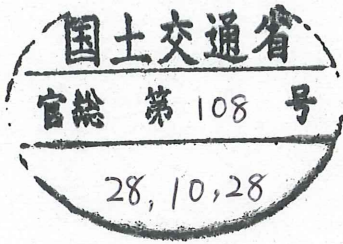 国土交通省
官総 第 108 号
28, 10, 28